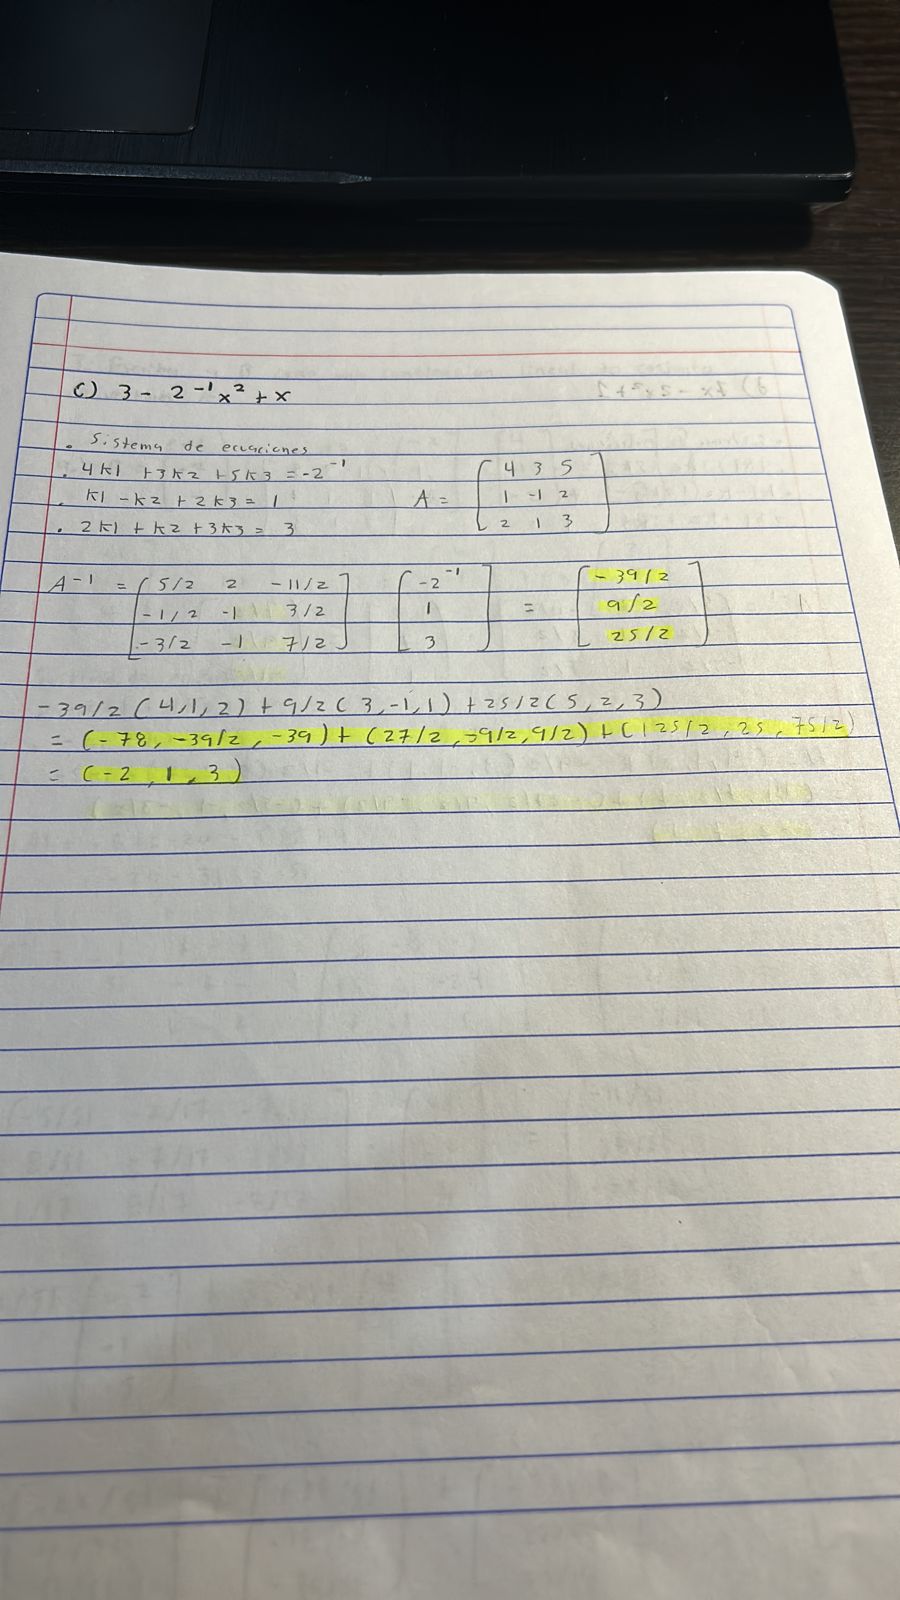 c) 3 - 2⁻¹x² + x
. Sistema de ecuaciones
. 4k1 + 3k2 + 5k3 = -2⁻¹
. k1 - k2 + 2k3 = 1
. 2k1 + k2 + 3k3 = 3
A =
4 3 5
1 -1 2
2 1 3
A⁻¹ =
5/2 2 -11/2
-1/2 -1 3/2
-3/2 -1 7/2
-2⁻¹
1
3
=
-39/2
9/2
25/2
-39/2 (4,1,2) + 9/2 (3,-1,1) + 25/2 (5,2,3)
= (-78, -39/2, -39) + (27/2, -9/2, 9/2) + (125/2, 25, 75/2)
= (-2, 1, 3)